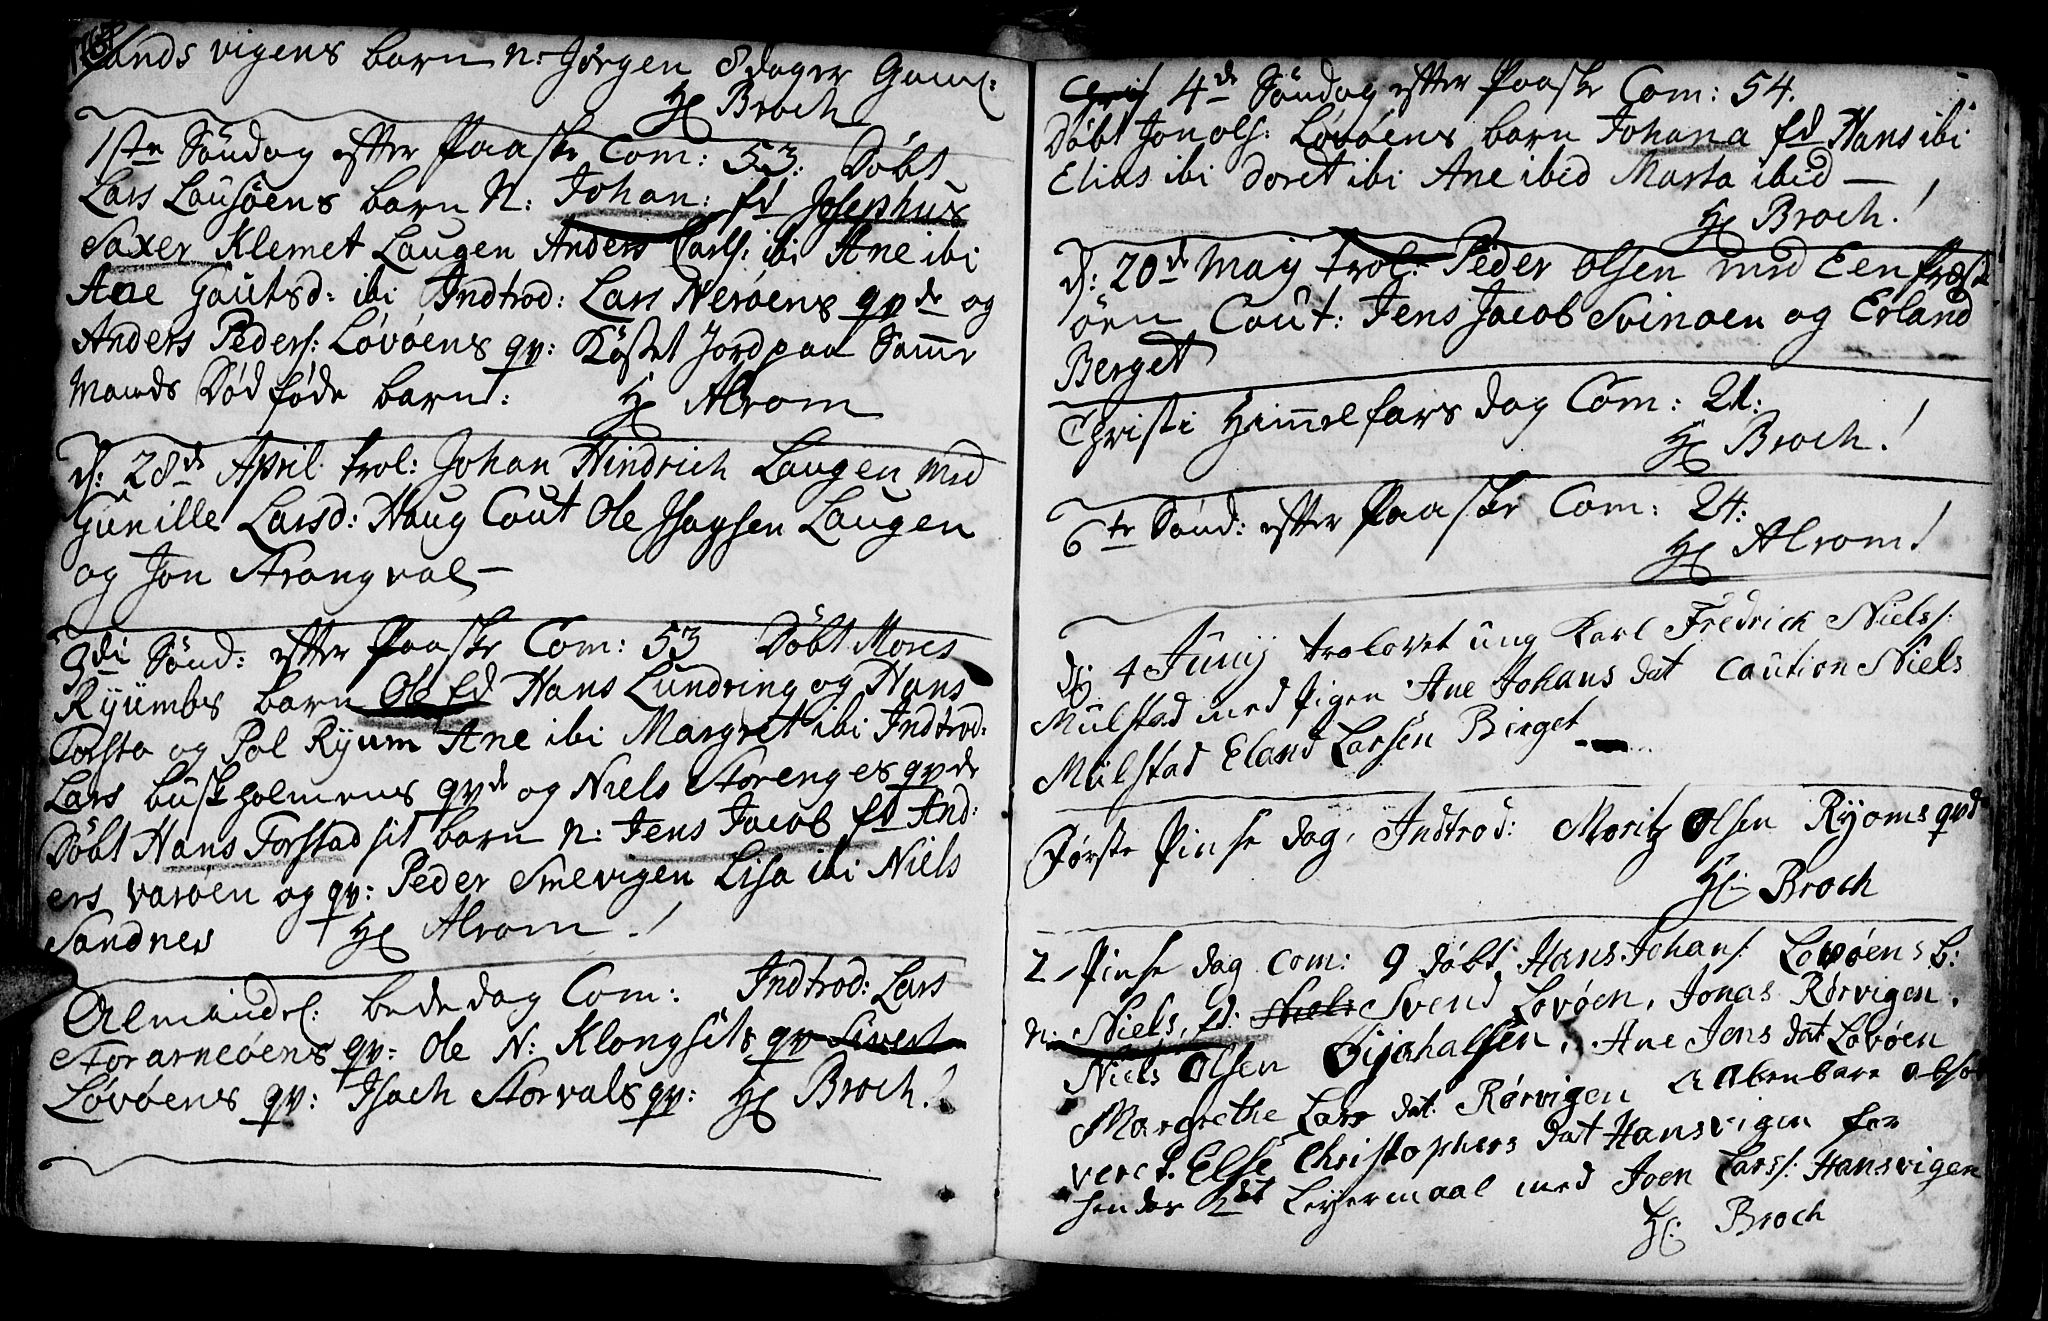 vigens barn n: Jørgen 8 dager Gaml:
H: Broch
1ste Söndag efter Paaske Com: 53: Döbt
Lars Lausöens barn N: Johan: fd Josephus
Saxer Klemet Laugen Anders Carls: ibi Ane ibi
Ane Gautsd: ibi Indtrod: Lars Nerøens qvde og
Anders Peders: Løvöens qv: Kastet Jord paa Samme
Mands Död föde barn: H: Alrom
d: 28de April trol: Johan Hindrich Laugen med
Gunille Larsd: Haug Caut Ole Isaqsen Laugen
og Jon Strangval
3di Sönd: efter Paaske Com: 53 Döbt Mores
Ryumbs barn Ole fd Hans Lundring og Hans
Forsta og Pol Ryum Ane ibi Margret ibi Indtrod:
Lars buskholmens qvde og Niels Storenges qvde
Döbt Hans Forstad sit barn n: Jens Jacob fd And:
ers varöen og qv: Peder Smevigen Lisa ibi Niels
Sandnes H: Alrom
Almindel: bededag Com: Indtrod: Lars
Storarneöens qv: Ole N: Klongsets qv Sivert
Løvøens qv: Isach Storvals qv: H: Broch!
4de Söndag efter Paaske Com: 54.
Döbt Jon Ols: Løvøens barn Johana fd Hans ibi
Elias ibi Doret ibi Ane ibid Marta ibid
H: Broch!
d: 20de Maij trol: Peder Olsen med Een Præst
öen Caut: Jens Jacob Svinöen og Erland
Berget
Christi Himmelfars dag Com: 21:
H: Broch!
6te Sönd: efter Paaske Com: 24:
H: Alrom!
d: 4 Junij trolovet ung Karl Fredrich Niels:
Mulstad med Pigen Ane Johans dat Caution Niels
Mulstad Eland Larsen Birget
Første Pinse dag, Indtrod: Moritz Olsen Ryoms qvd
H: Broch
2 Pinse dag Com: 9 döbt Hans Johans: Lovøens b:
n: Niels, fd: Niels Svend Lovøen, Jonas Rørvigen,
Niels Olsen , Ane Jens dat Løvøen
Margrethe Lars dat Rørvigen Aabenbare absol
veret Else Christophers dat Hansvigen for
hendes 2det Leyermaal med Joen Lars: Hansvigen
H: Broch